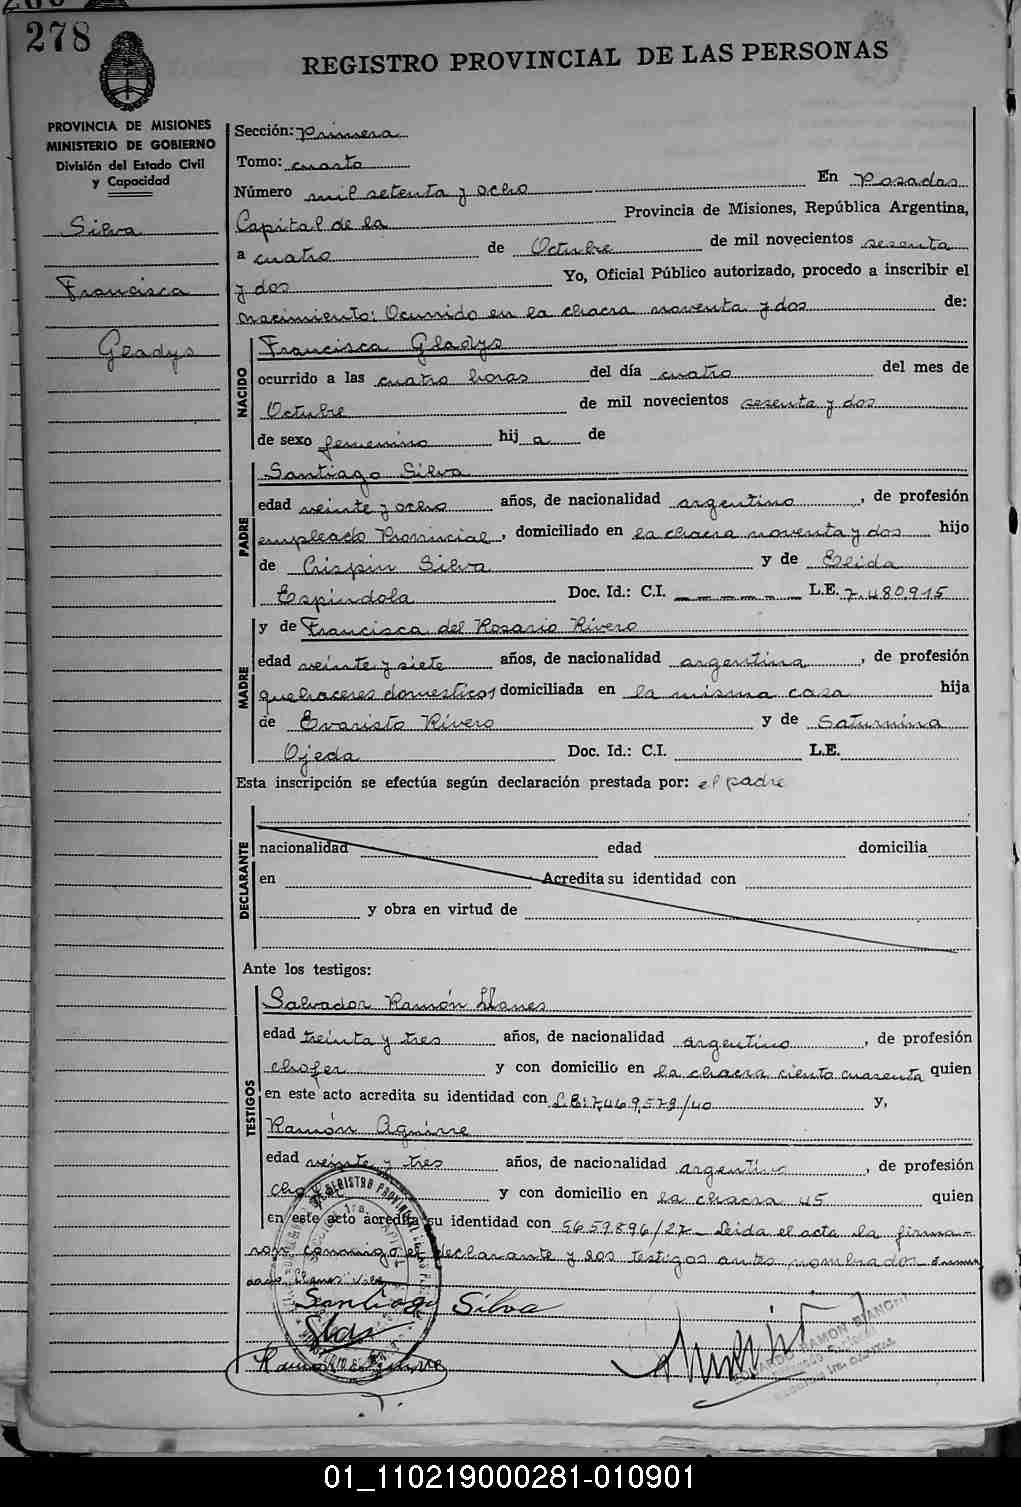 278
REGISTRO PROVINCIAL DE LAS PERSONAS
PROVINCIA DE MISIONES
MINISTERIO DE GOBIERNO
División del Estado Civil
y Capacidad
Silva
Francisca
Gladys
Sección: Primera
Tomo: cuarto
Número mil setenta y ocho En Posadas
Capital de la Provincia de Misiones, República Argentina,
a cuatro de Octubre de mil novecientos sesenta
y dos Yo, Oficial Público autorizado, procedo a inscribir el
nacimiento: Ocurrido en la chacra noventa y dos de:
NACIDO
Francisca Gladys
ocurrido a las cuatro horas del día cuatro del mes de
Octubre de mil novecientos sesenta y dos
de sexo femenino hij a de
PADRE
Santiago Silva
edad veinte y ocho años, de nacionalidad argentino, de profesión
empleado Provincial, domiciliado en la chacra noventa y dos hijo
de Crispin Silva y de Elida
Espindola Doc. Id.: C.I. — — — — — L.E. 7.480.915
MADRE
y de Francisca del Rosario Rivero
edad veinte y siete años, de nacionalidad argentina, de profesión
quehaceres domesticos domiciliada en la misma casa hija
de Evaristo Rivero y de Saturnina
Ojeda Doc. Id.: C.I. L.E.
Esta inscripción se efectúa según declaración prestada por: el padre
DECLARANTE
nacionalidad edad domicilia
en Acredita su identidad con
y obra en virtud de
Ante los testigos:
TESTIGOS
Salvador Ramón Llanes
edad treinta y tres años, de nacionalidad argentino, de profesión
chofer y con domicilio en la chacra ciento cuarenta quien
en este acto acredita su identidad con L.E: 7,469,579/40 y,
Ramón Aguirre
edad veinte y tres años, de nacionalidad argentino, de profesión
y con domicilio en la chacra 45 quien
en este acto acredita su identidad con 5659.896/27 - Leida el acta la firma-
ron conmigo el declarante y los testigos antes nombrados -
Llanes Vale
Santiago Silva
EDUARDO RAMON BIANCHI
01_110219000281-010901